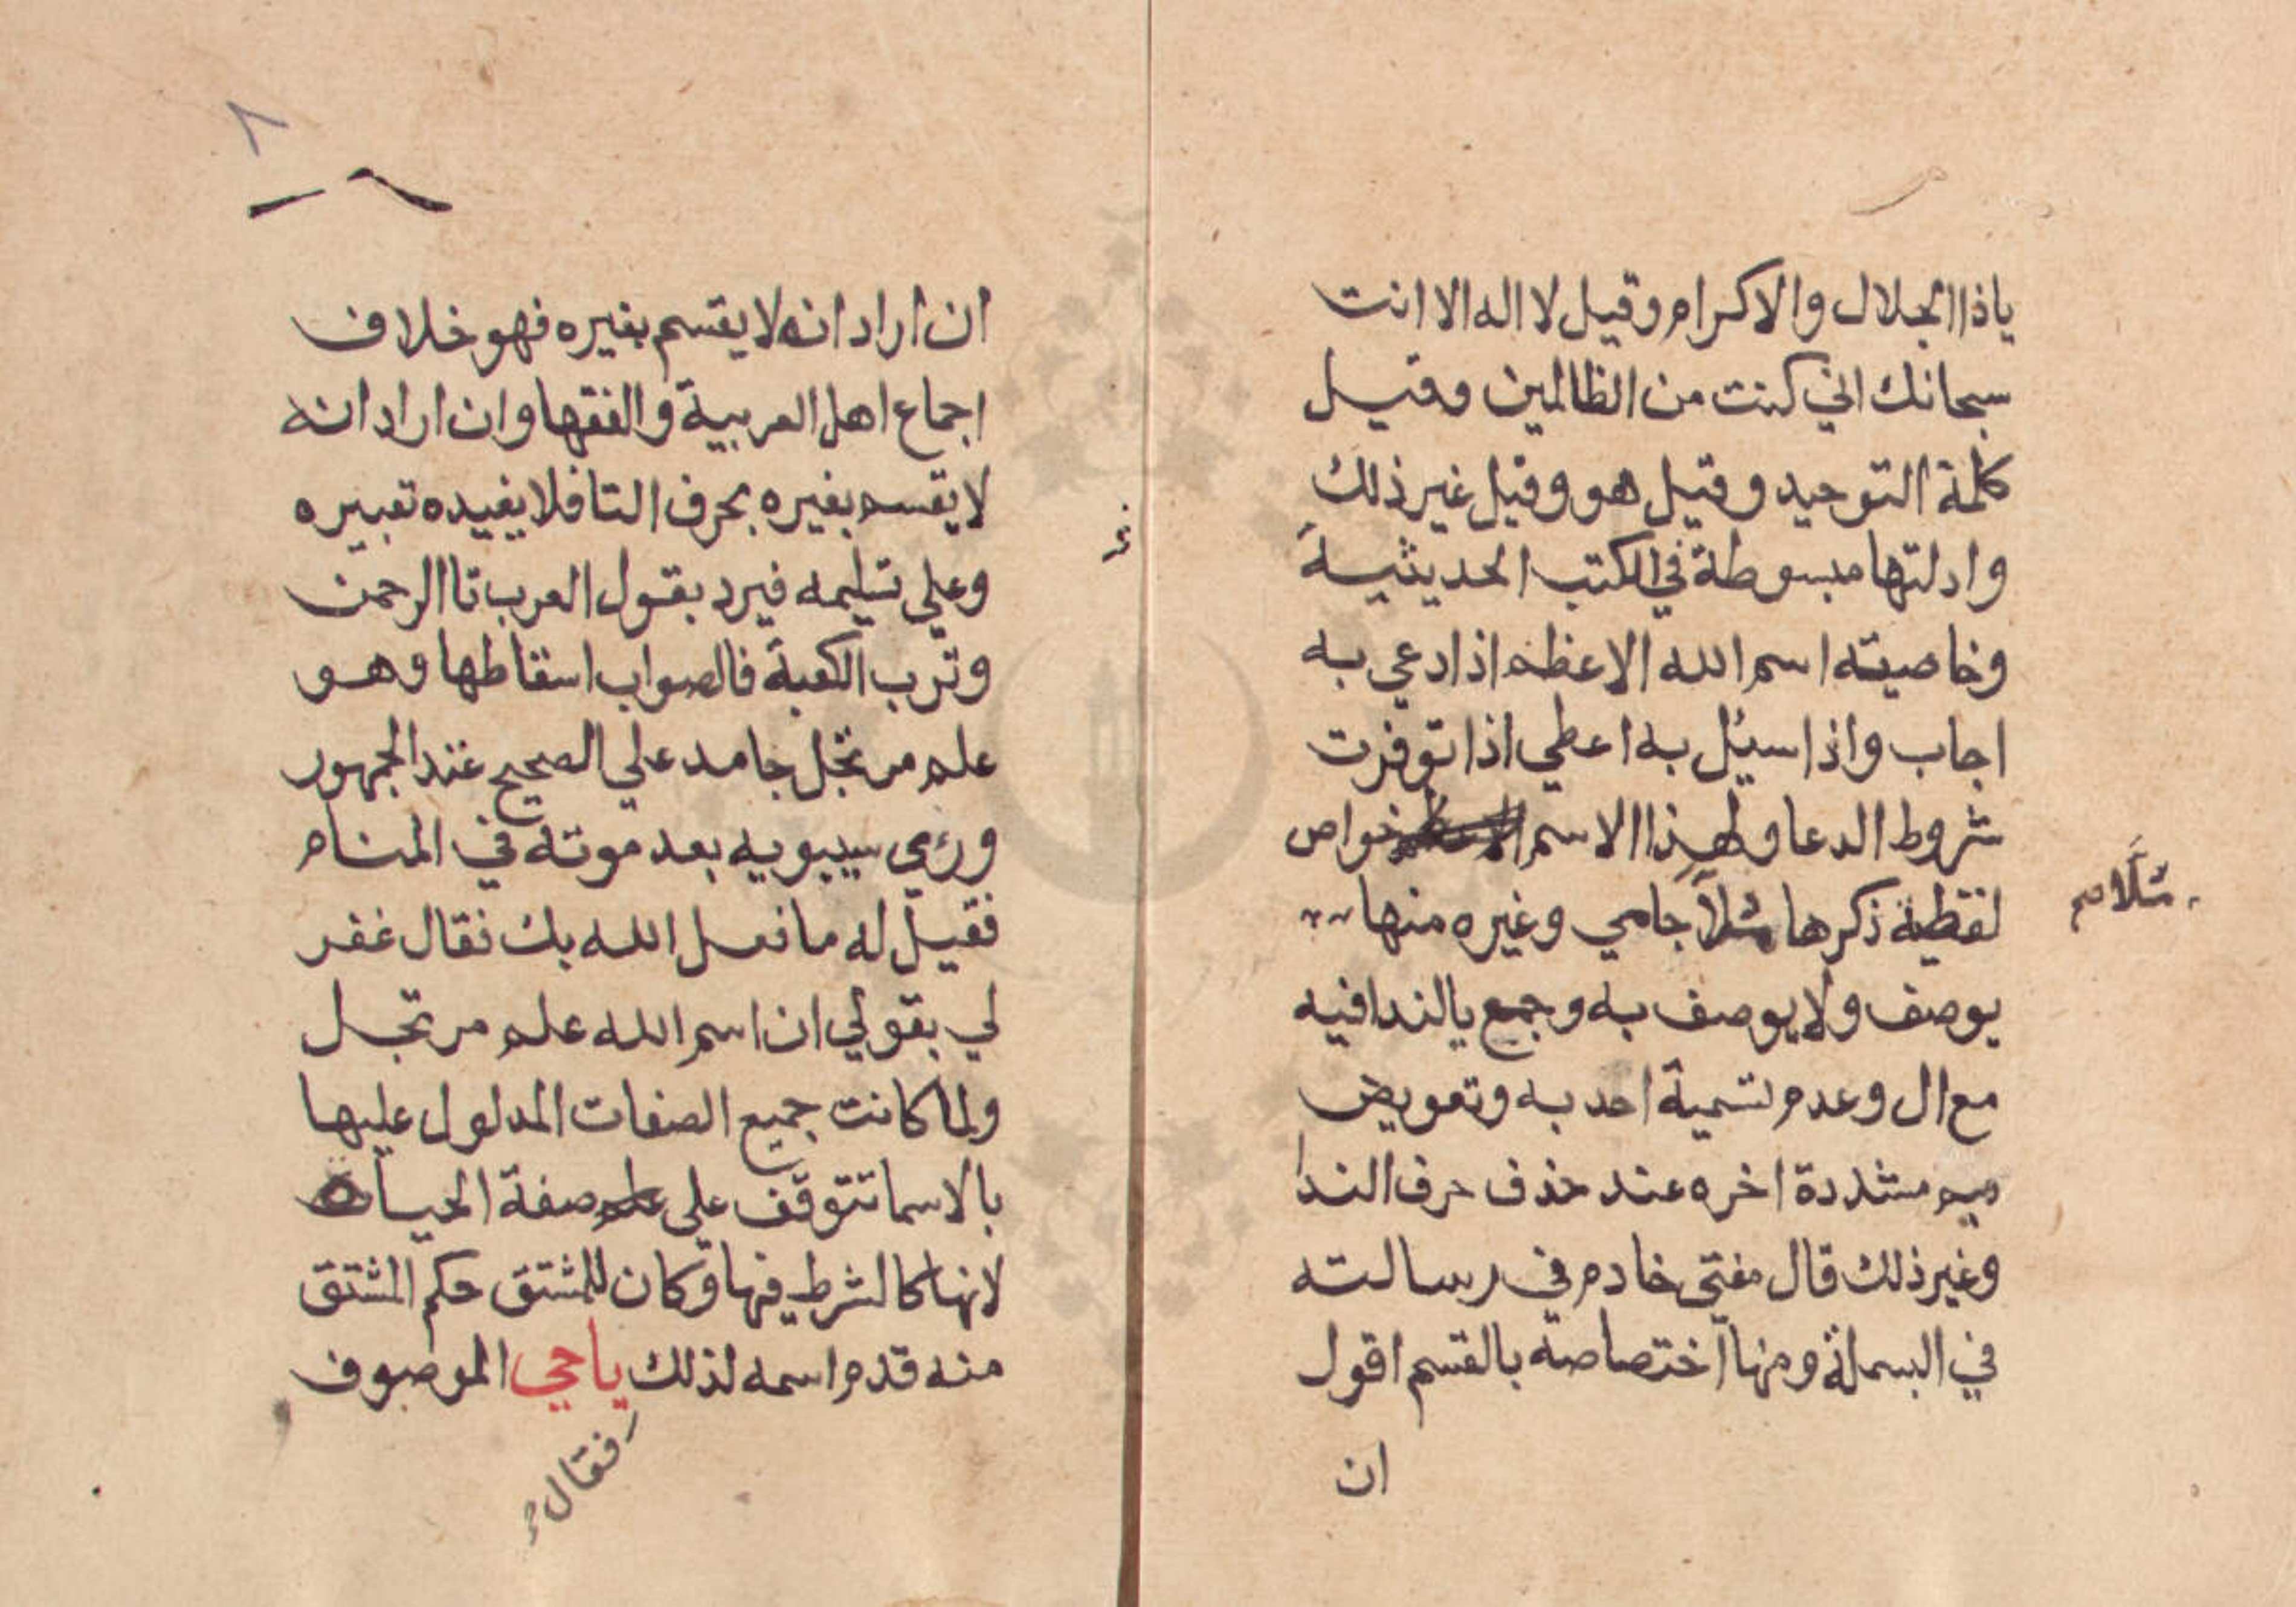 ياذا الجلال والاكرام وقيل لا اله الا انت
سبحانك اني كنت من الظالمين وقيل
كلمة التوحيد وقيل هو وقيل غير ذلك
وادلتها مبسوطة في الكتب الحديثية
وخاصيته اسم الله الاعظم اذا دعي به
اجاب واذا سيئل به اعطي اذا توفرت
شروط الدعا ولهذا الاسم خواص
لفظية ذكرها مثلا جامي وغيره منها
يوصف ولا يوصف به وجمع يا الندا فيه
مع ال وعدم تسمية احد به وتعويض
ميم مشددة اخره عند حذف حرف الندا
وغير ذلك قال مفتي خادم في رسالته
في البسملة ومنها اختصاصه بالقسم اقول
ان
ان اراد انه لا يقسم بغيره فهو خلاف
اجماع اهل العربية والفقها وان اراد انه
لا يقسم بغيره بحرف التا فلا يفيده تعبيره
وعلي تسليمه فيرد بقول العرب تا الرحمن
وترب الكعبة فالصواب اسقاطها وهو
علم مرتجل جامد علي الصحيح عند الجمهور
ورؤي سيبويه بعد موته في المنام
فقيل له ما فعل الله بك فقال غفر
لي بقولي ان اسم الله علم مرتجل
ولما كانت جميع الصفات المدلول عليها
بالاسما تتوقف علي صفة الحياة
لانها كالشرط فيها وكان للمشتق حكم المشتق
منه قدم اسمه لذلك ياحي الموصوف
فقال
٨